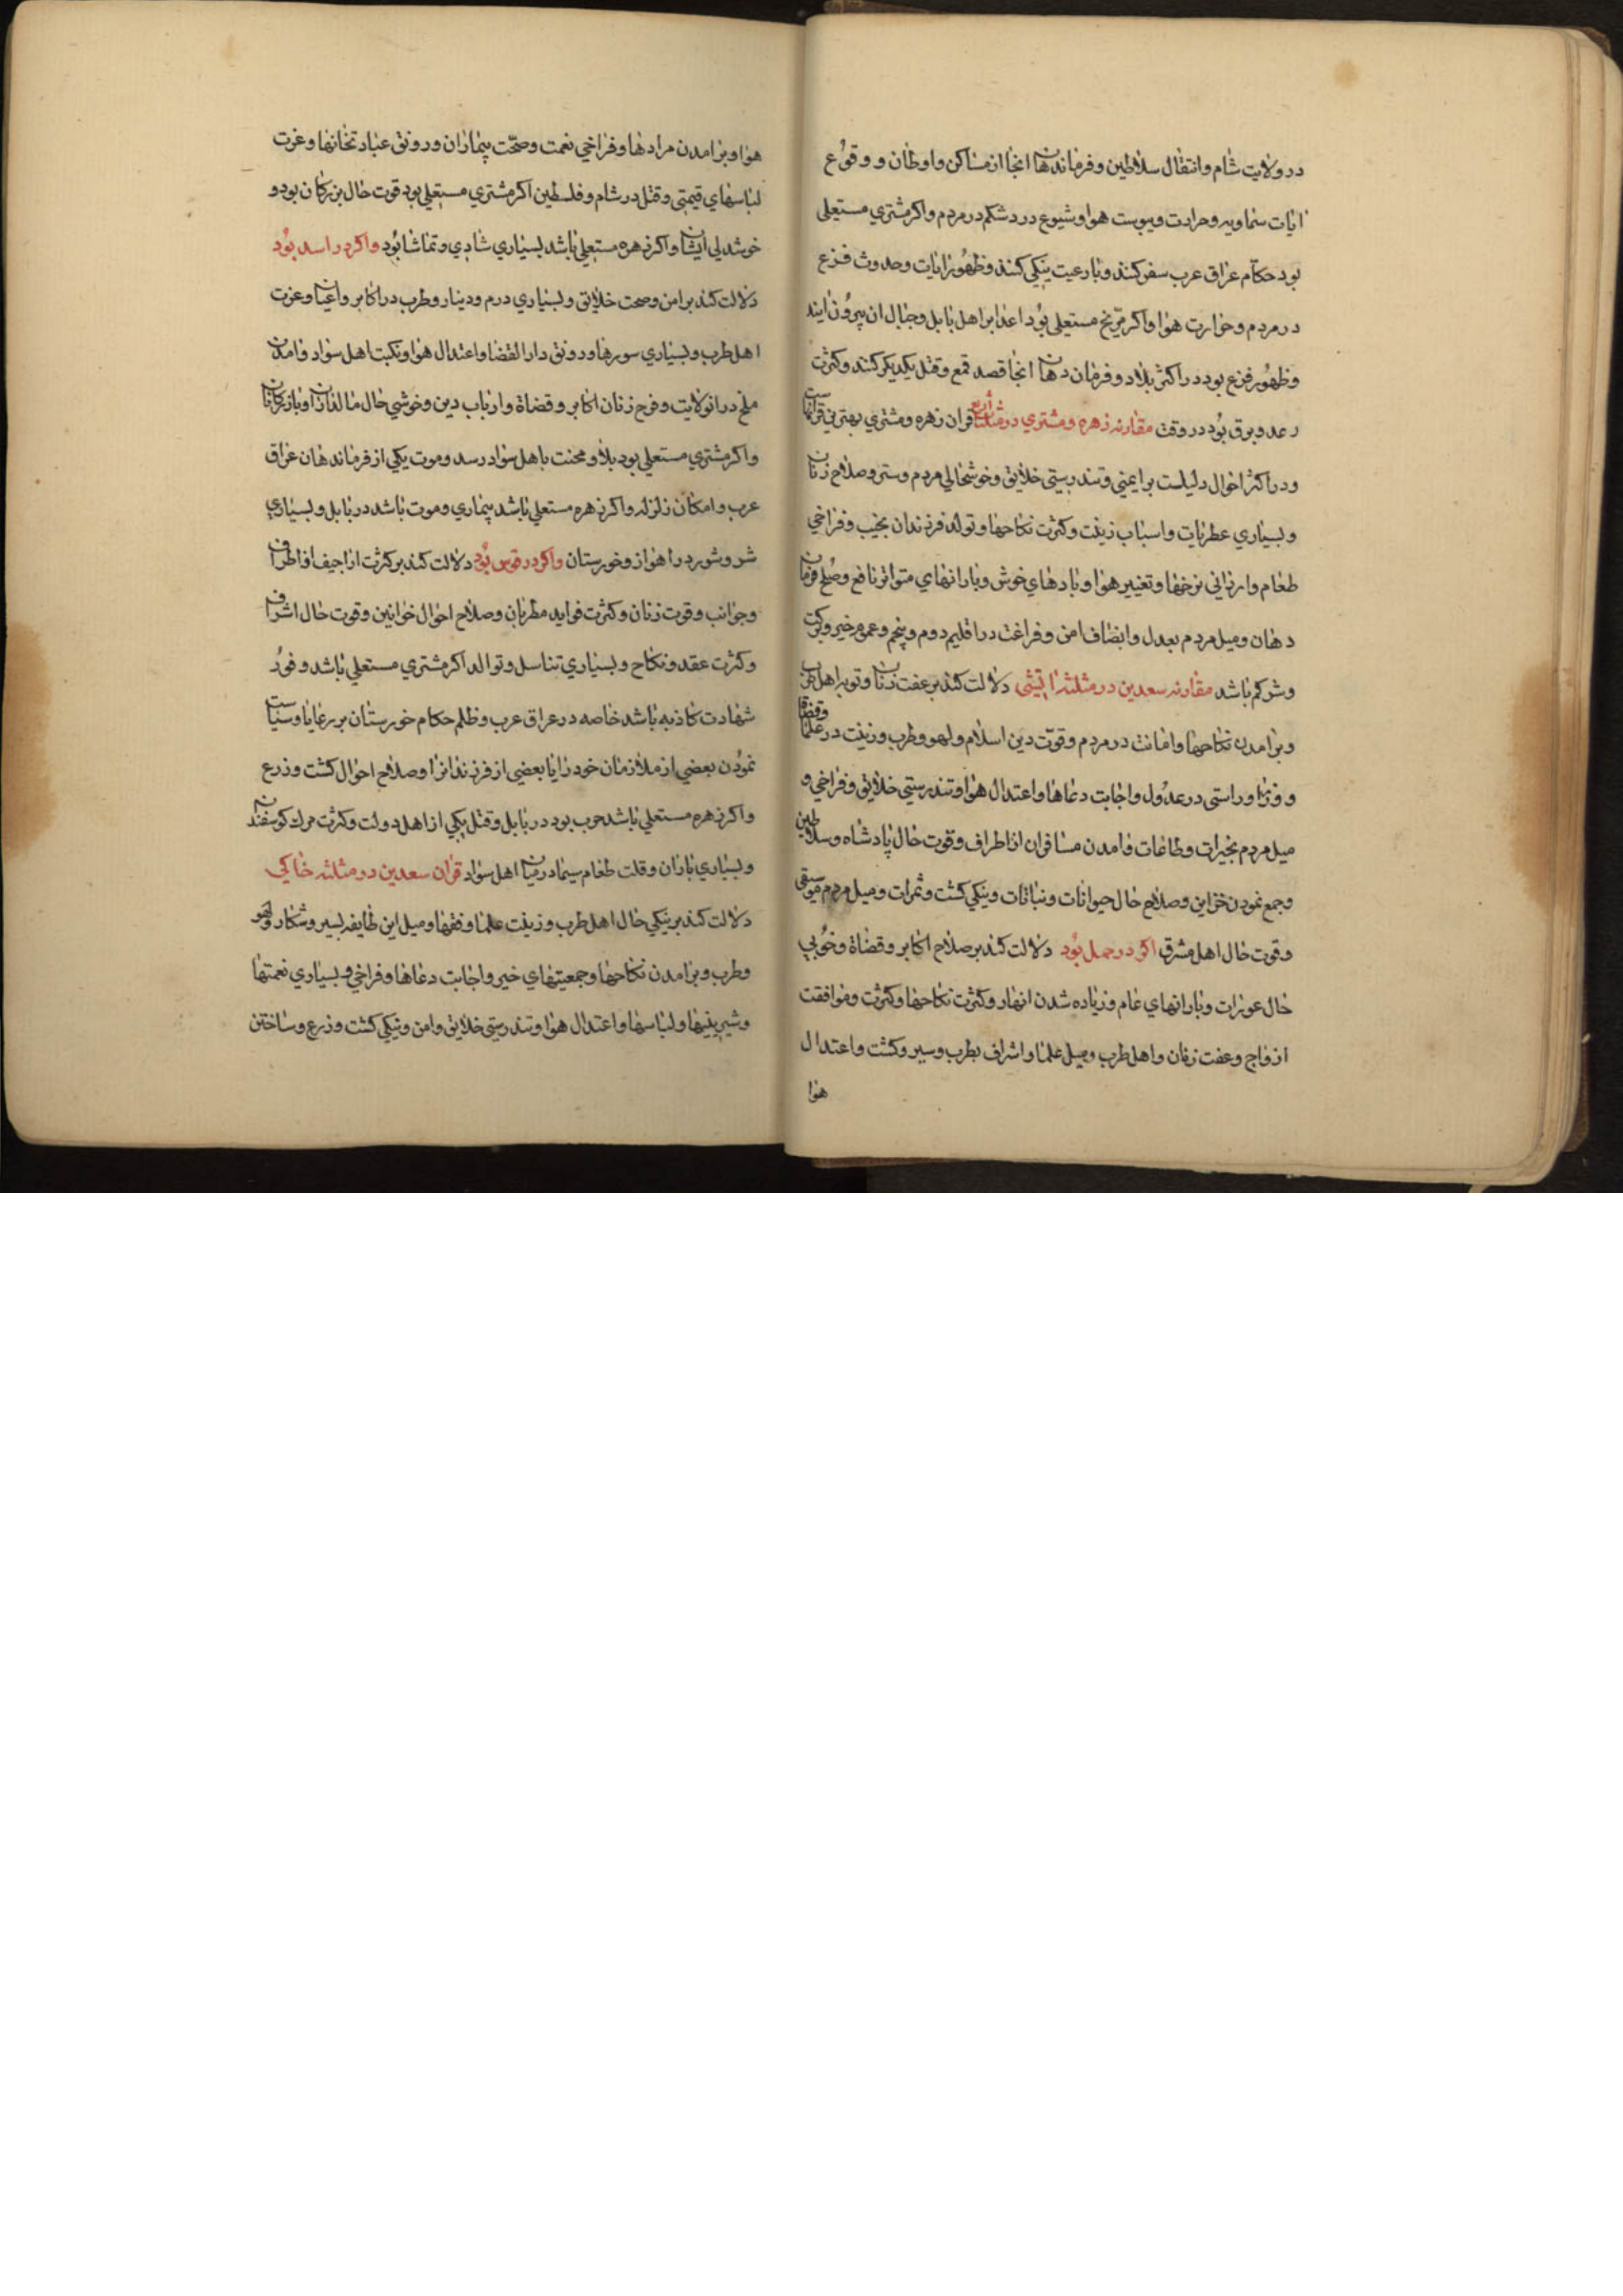 در ولایت شام و انتقال سلاطین و فرماندهان انجا از مساکن و اوطان و وقوع
ایات سماویه و حرارت و یبوست هوا و شیوع درد شکم در مردم و اکر مشتري مستعلی
بود حکام عراق عرب سفر کنند و با رعیت نیکی کنند و ظهور ایات و حدوث فزع
در مردم و حرارت هوا و اکر مریخ مستعلی بود اعدا بر اهل بابل و جبال ان بیرون ایند
و ظهور فزع بود در اکثر بلاد و فرمان دهان انجا قصد قمع و قتل یکدیکر کنند و کثرت
رعد و برق بود در وقت مقارنه زهره و مشتري در مثلثات اربع قران زهره و مشتري بهترین قرانهاست
و در اکثر احوال دلیلست بر ایمني و تندرستي خلایق و خوشحالي مردم و ستر و صلاح زنان
و بسیاري عطریات و اسباب زینت و کثرت نکاحها و تولد فرزندان نجیب و فراخي
طعام و ارزاني نرخها و تغییر هوا و بادهاي خوش و بارانهاي متواتر نافع و صلح فرمان
دهان و میل مردم بعدل و انصاف امن و فراغت در اقلیم دوم و پنجم و عموم خیر و برکت
و شر کم باشد مقارنه سعدین در مثلثه اتشي دلالت کند بر عفت زنان و توبه اهل طرب
و برامدن نکاحها و امانت در مردم و قوت دین اسلام و لهو و طرب و زینت در علما و قضاة
و وزرا و راستی در عدول و اجابت دعاها و اعتدال هوا و تندرستي خلایق و فراخي و
میل مردم بخیرات و طاعات و امدن مسافران از اطراف و قوت حال پادشاه و سلاطین
و جمع نمودن خزاین و صلاح حال حیوانات و نباتات و نیکی کشت و ثمرات و میل مردم موسیقی
و قوت حال اهل مشرق اکر در حمل بود دلالت کند بر صلاح اکابر و قضاة و خوبي
حال عورات و بارانهاي عام و زیاده شدن انهار و کثرت نکاحها و کثرت و موافقت
ازواج و عفت زنان و اهل طرب و میل علما و اشراف بطرب و سیر و کشت و اعتدال
هوا
هوا و برامدن مرادها و فراخي نعمت و صحت بیماران و رونق عبادتخانها و عزت
لباسهاي قیمتي و قتل در شام و فلسطین اکر مشتري مستعلي بود قوت حال بزرکان بود و
خوشدلي ایشان و اکر زهره مستعلي باشد بسیاري شادي و تماشا بود و اکر در اسد بود
دلالت کند بر امن و صحت خلایق و بسیاري درم و دینار و طرب در اکابر و اعیان و عزت
اهل طرب و بسیاري سورها و رونق دار القضا و اعتدال هوا و نکبت اهل سواد و امدن
ملخ در انولایت و فرح زنان اکابر و قضاة و ارباب دین و خوشي حال مالداران و بازرکانان
و اکر مشتري مستعلي بود بلا و محنت باهل سواد رسد و موت یکي از فرماندهان عراق
عرب و امکان زلزله و اکر زهره مستعلي باشد بیماري و موت باشد در بابل و بسیاري
شر و شور در اهواز و خورستان و اکر در قوس بود دلالت کند بر کثرت اراجیف از اطراف
و جوانب و قوت زنان و کثرت فواید مطربان و صلاح احوال خواتین و قوت حال اشراف
و کثرت عقد و نکاح و بسیاري تناسل و توالد اکر مشتري مستعلي باشد و فور
شهادت کاذبه باشد خاصه در عراق عرب و ظلم حکام خورستان بر رعایا و سیاست
نمودن بعضي از ملازمان خود را یا بعضي از فرزندانرا و صلاح احوال کشت و زرع
و اکر زهره مستعلي باشد حرب بود در بابل و قتل یکي از اهل دولت و کثرت مرك کوسفندان
و بسیاري باران و قلت طعام سیما در میان اهل سواد قران سعدین در مثلثه خاکي
دلالت کند بر نیکي حال اهل طرب و زینت علما و فقها و میل این طایفه بسیر و شکار و لهو
و طرب و برامدن نکاحها و جمعیتهاي خیر و اجابت دعاها و فراخي و بسیاري نعمتها
و شیرینیها و لباسها و اعتدال هوا و تندرستي خلایق و امن و نیکي کشت و زرع و ساختن